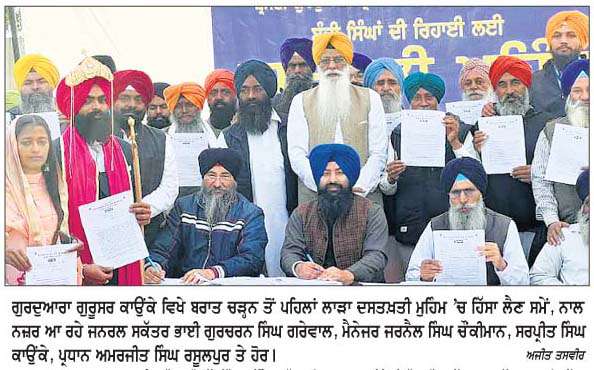 ਬੰਦੀ ਸਿੰਘਾਂ ਦੀ ਰਿਹਾਈ ਲਈ
ਗੁਰਦੁਆਰਾ ਗੁਰੂਸਰ ਕਾਉਂਕੇ ਵਿਖੇ ਬਰਾਤ ਚੜ੍ਹਨ ਤੋਂ ਪਹਿਲਾਂ ਲਾੜਾ ਦਸਤਖ਼ਤੀ ਮੁਹਿਮ 'ਚ ਹਿੱਸਾ ਲੈਣ ਸਮੇਂ, ਨਾਲ
ਨਜ਼ਰ ਆ ਰਹੇ ਜਨਰਲ ਸਕੱਤਰ ਭਾਈ ਗੁਰਚਰਨ ਸਿੰਘ ਗਰੇਵਾਲ, ਮੈਨੇਜਰ ਜਰਨੈਲ ਸਿੰਘ ਚੌਕੀਮਾਨ, ਸਰਪ੍ਰੀਤ ਸਿੰਘ
ਕਾਉਂਕੇ, ਪ੍ਰਧਾਨ ਅਮਰਜੀਤ ਸਿੰਘ ਰਸੂਲਪੁਰ ਤੇ ਹੋਰ।
ਅਜੀਤ ਤਸਵੀਰ